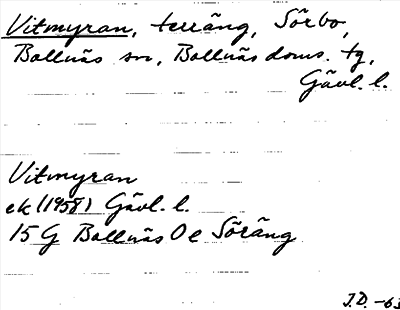 Vitmyran, terräng, Sörbo,
Bollnäs sn, Bollnäs doms. tg,
Gävl. l.
Vitmyran
ek (1958) Gävl. l.
15 G Bollnäs O e Söräng
J.D. -63